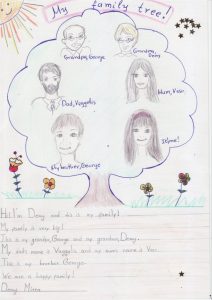 My family tree!
Grandpa, George
Grandma, Deny
Dad, Vaggelis
Mum, Vaso
My brother, George
It's me!
Hi! I'm Deny and this is my family!
My family is very big!
This is my grandpa, George and my grandma, Deny.
My dad's name is Vaggelis and my mum's name is Vaso.
This is my brother George.
We are a happy family!
Deny